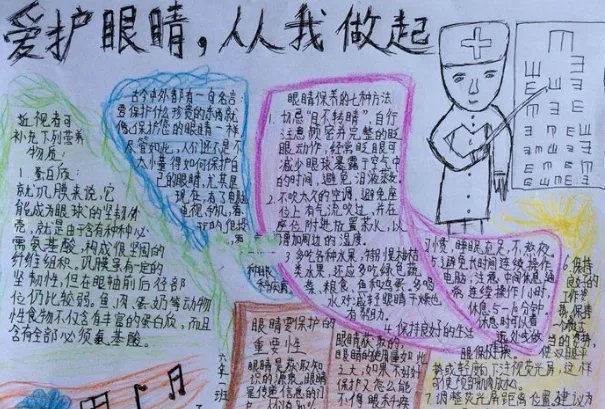 爱护眼睛，从我做起
近视者可
补充下列营养
物质：
1. 蛋白质：
就巩膜来说，它
能成为眼球的坚韧外
壳，就是由于含有种种必
需氨基酸，构成很坚固的
纤维组织。巩膜虽有一定的
坚韧性，但在眼轴前后径部
位仍比较弱。鱼、肉、蛋、奶等动物
性食物不仅含有丰富的蛋白质，而且
含有全部必须氨基酸。
古今中外都有一句名言：
要保护什么珍贵的东西就
像保护您的眼睛一样
尽管如此，人们还是不
大懂得如何保护自
己的眼睛，尤其是
现在，有了电脑
电视、手机
眼睛保养的七种方法
1. 切忌"目不转睛"，自行
注意频密并完整的眨
眼动作，经常眨眼可
减少眼球暴露于空气中
的时间，避免泪液蒸发。
2. 不吹太久的空调，避免座
位上有气流吹过，并在
座位附近放置茶水，以
增加周边的湿度。
3. 多吃各种水果，特别是柑桔
类水果，还应多吃绿色蔬
菜、粮食、鱼和鸡蛋。多喝
水对减轻眼睛干燥也
有帮助。
4. 保持良好的生活
习惯，睡眠充足，不熬夜
5. 避免长时间连续操作
电脑，注意中间休息，通
常连续操作1小时，
休息5-10分钟。
休息时可以看
远处或做
眼保健操。
6. 保持
良好的
工作姿
势。保
持一个
最适当
的姿势，
使双眼平
视或轻度向下注视荧光屏，这样
7. 调整荧光屏距离位置。建议为
眼睛要保护的
重要性
眼睛是获取知
识的源泉，眼睛
是传递信息的
眼睛的使用量如此
之大，如果不好好
保护又怎么能
不使眼科疾
六年一班